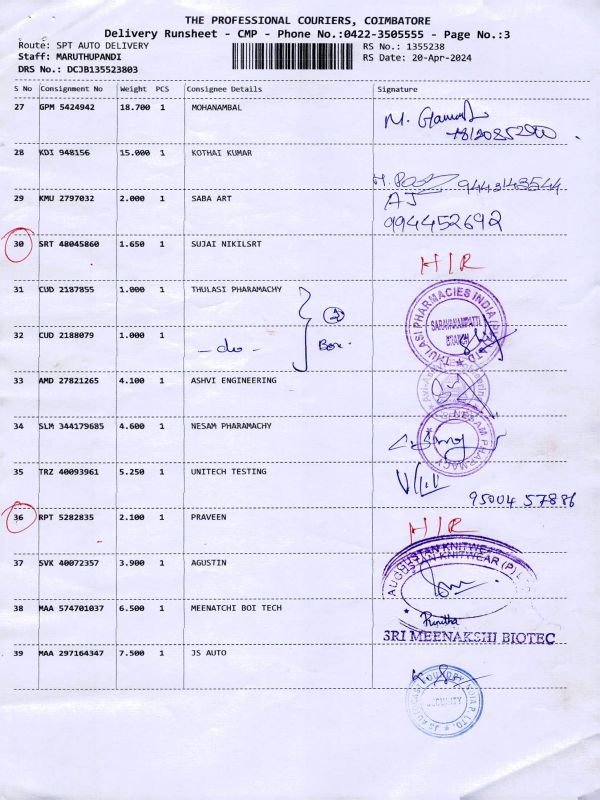 THE PROFESSIONAL COURIERS, COIMBATORE
Delivery Runsheet - CMP - Phone No.:0422-3505555 - Page No.:3
Route: SPT AUTO DELIVERY RS No.: 1355238
Staff: MARUTHUPANDI RS Date: 20-Apr-2024
DRS No.: DCJB135523803
S No Consignment No Weight PCS Consignee Details Signature
27 GPM 5424942 18.700 1 MOHANAMBAL
28 KDI 948156 15.000 1 KOTHAI KUMAR
9443143544
29 KMU 2797032 2.000 1 SABA ART AJ
994452692
30 SRT 48045860 1.650 1 SUJAI NIKILSRT H/R
31 CUD 2187855 1.000 1 THULASI PHARAMACHY
THULASI PHARMACIES INDIA (P) LTD.
SARAVANAMPATTI BRANCH
32 CUD 2188079 1.000 1 - do - 2 Box.
33 AMD 27821265 4.100 1 ASHVI ENGINEERING
34 SLM 344179685 4.600 1 NESAM PHARAMACHY
NESAM PHARMACY
35 TRZ 40093961 5.250 1 UNITECH TESTING
95004 57886
36 RPT 5282835 2.100 1 PRAVEEN H/R
37 SVK 40072357 3.900 1 AGUSTIN
AUGUSTAN KNITWEAR (P)
38 MAA 574701037 6.500 1 MEENATCHI BOI TECH
Punitha
SRI MEENAKSHI BIOTEC
39 MAA 297164347 7.500 1 JS AUTO
JS AUTOCAST FOUNDRY INDIA P LTD.
SECURITY